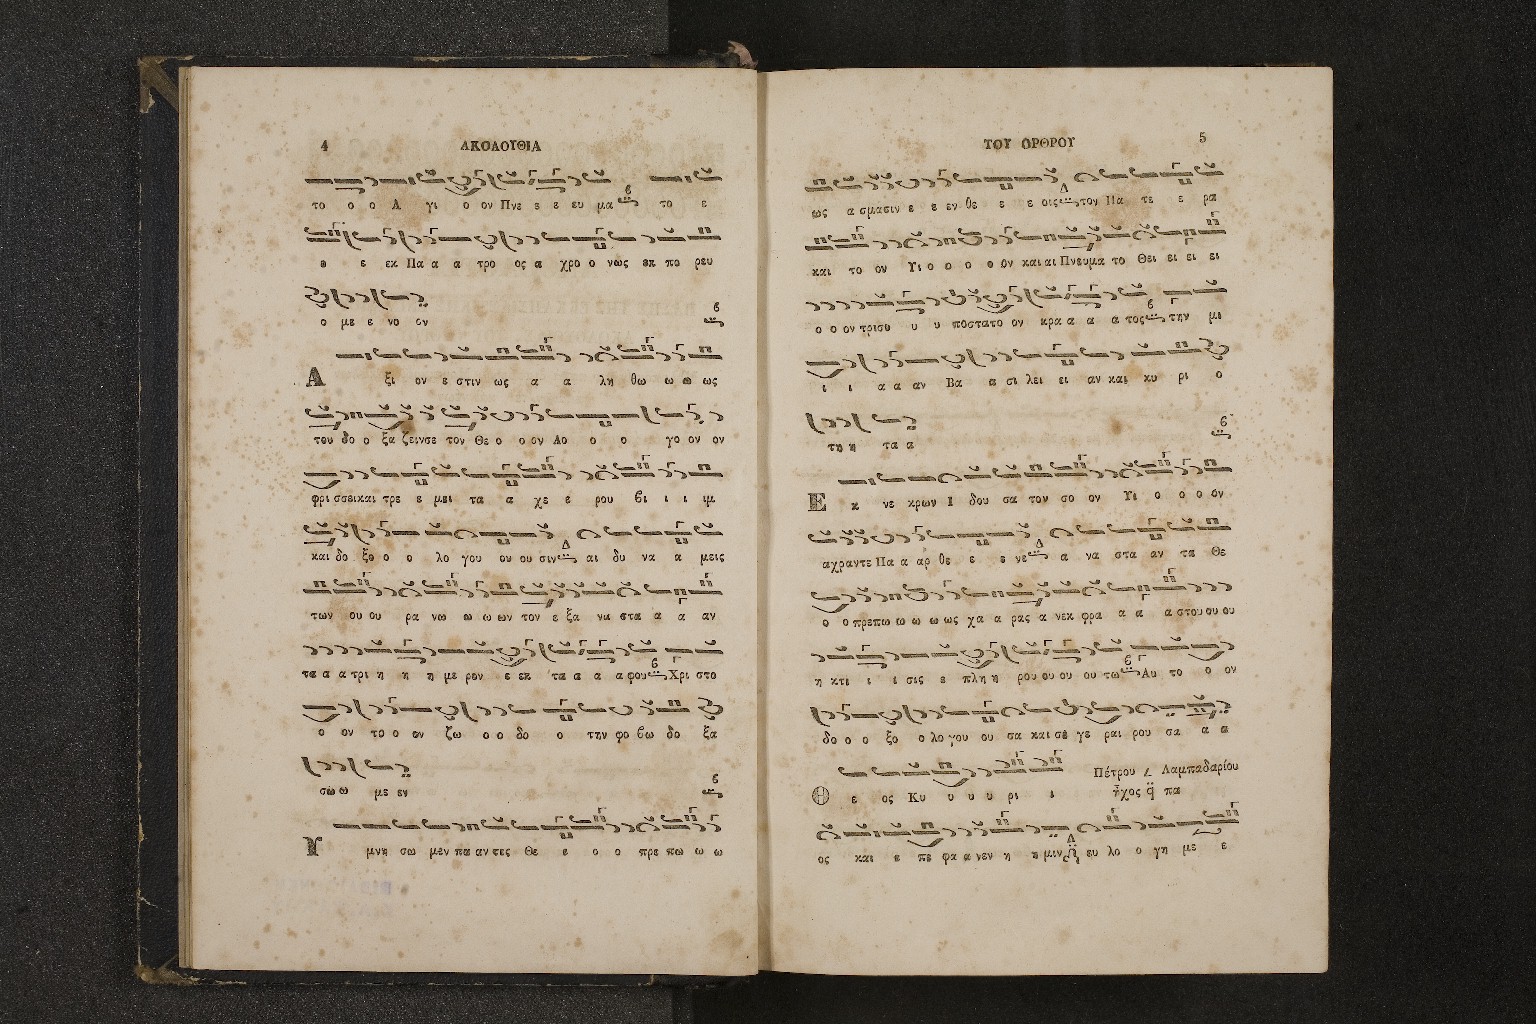 4 ΑΚΟΛΟΥΘΙΑ
το ο ο Α γι ο ον Πνε ε ε ευ μα το ε
ε ε εκ Πα α α τρο ος α χρο ο νως εκ πο ρευ
ο με ε νο ον
Α ξι ον ε στιν ως α α λη θω ω ω ως
του δο ο ξα ζεινσε τον Θε ο ο ον Λο ο ο γο ον ον
φρι σσεικαι τρε ε μει τα α χε ε ρου βι ι ι ιμ
και δο ξο ο ο λο γου ου ου σιν αι δυ να α μεις
των ου ου ρα νω ω ω ων τον ε ξα να στα α α αν
τα α α τρι η η η με ρον ε εκ τα α α α φου Χρι στο
ο ον το ο ον ζω ο ο δο ο την φο βω δο ξα
σω ω με εν
Υ μνη σω μεν πα αν τες Θε ε ο ο πρε πω ω ω
ΤΟΥ ΟΡΘΡΟΥ 5
ως α σμασιν ε ε εν θε ε ε οις τον Πα τε ε ρα
και το ον Υι ο ο ο ον και αι Πνευμα το Θει ει ει ει
ο ο ον τρισυ υ υ ποστατο ον κρα α α α τος την μι
ι ι α α αν Βα α σι λει ει αν και κυ ρι ο
τη η τα α
Ε κ νε κρων Ι δου σα τον σο ον Υι ο ο ο ον
αχραντε Πα α αρ θε ε ε νε α να στα αν τα Θε
ο ο πρεπω ω ω ω ως χα α ρας α νεκ φρα α α α στου ου ου
η κτι ι ι σις ε πλη η ρου ου ου ου τω Αυ το ο ον
δο ο ο ξο ο λο γου ου σα και σε γε ραι ρου σα α α
Πέτρου Λαμπαδαρίου
Θ ε ος Κυ υ υ υ ρι ι ἦχος πα
ος και ε πε φα α νεν η η μιν ευ λο ο γη με ε